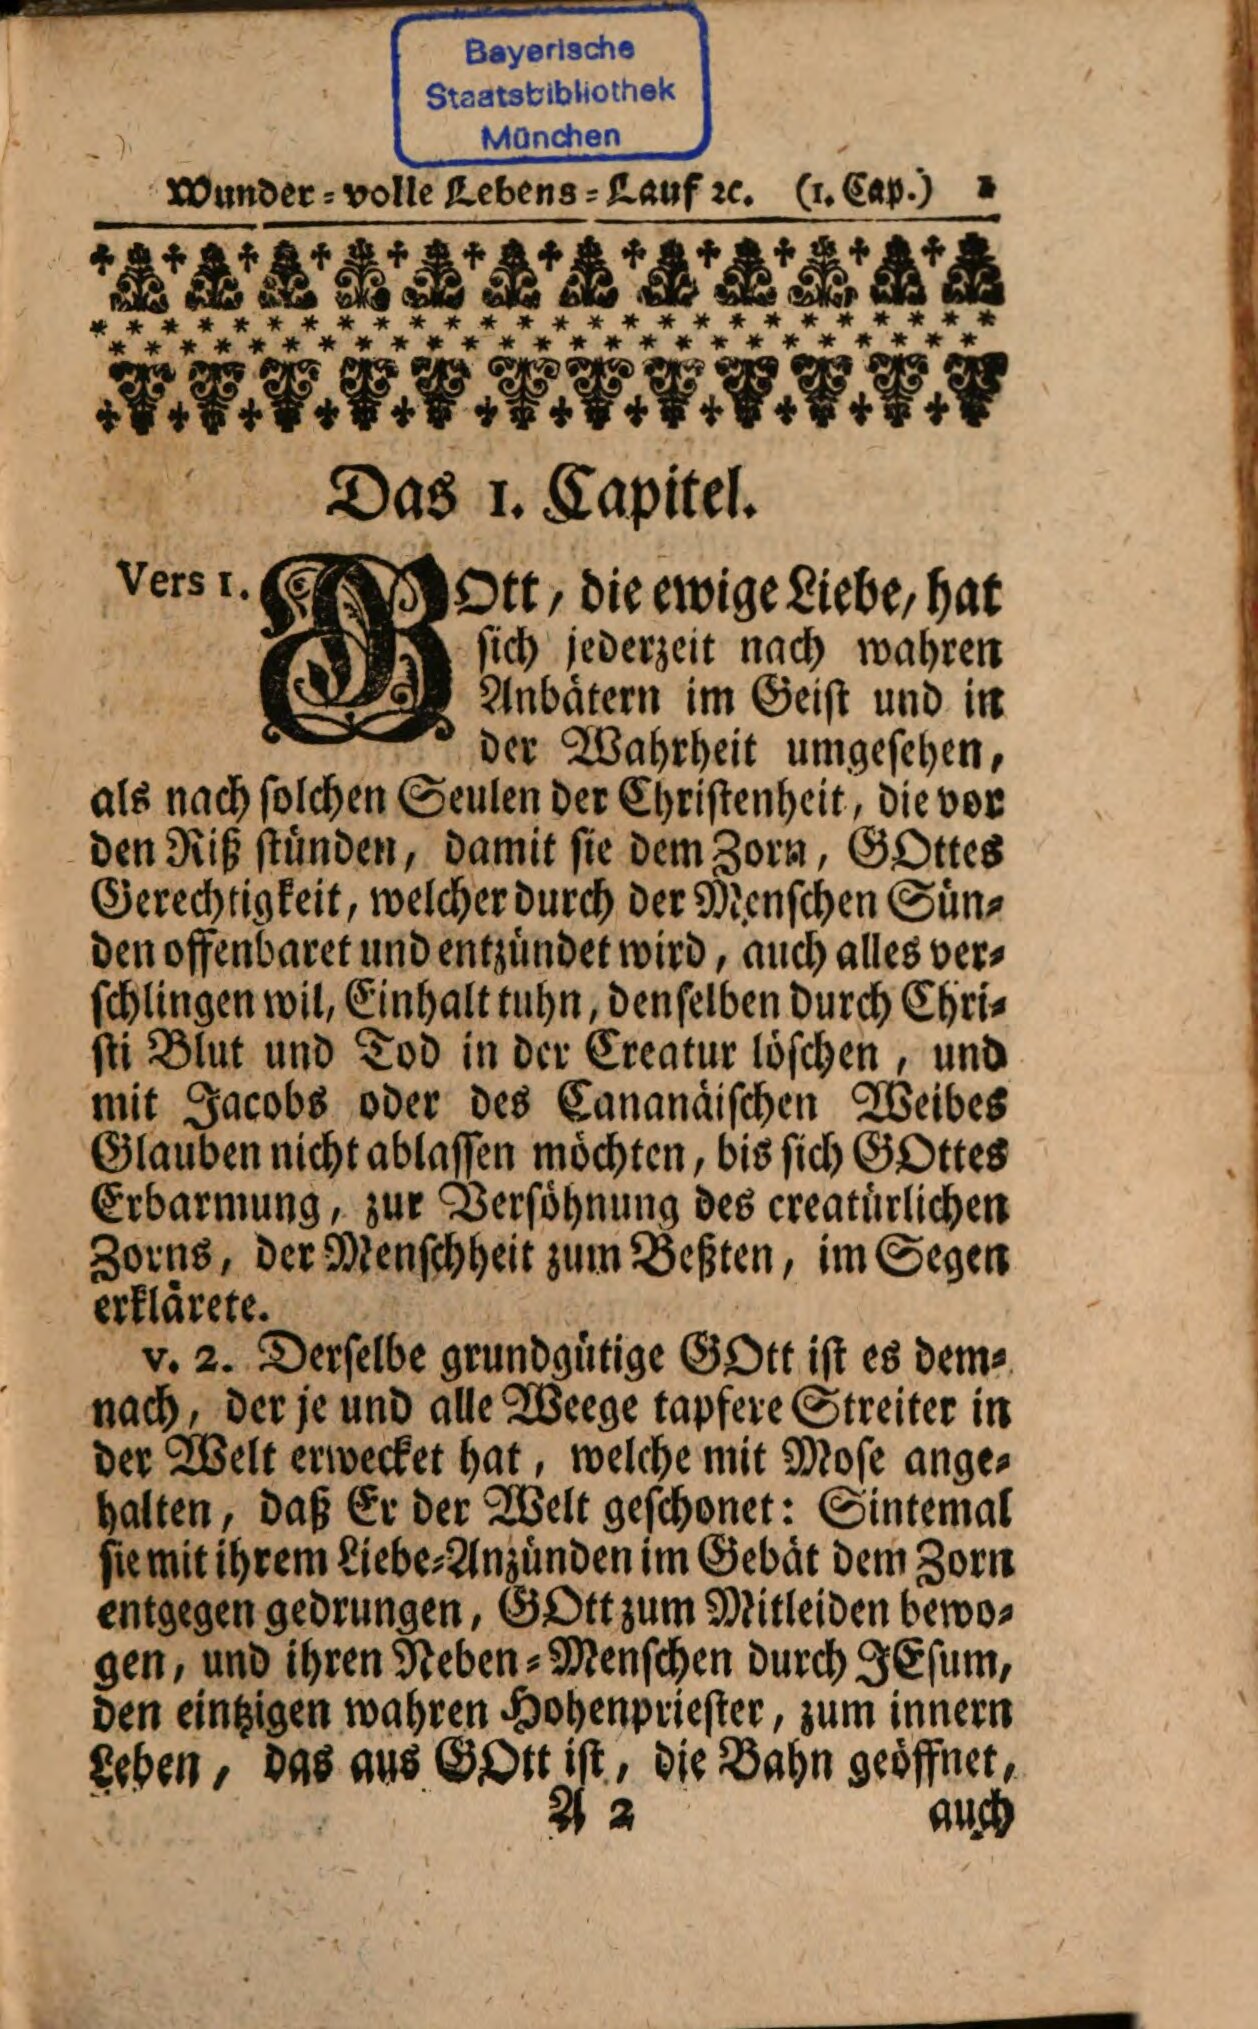 Bayerische
Staatsbibliothek
München
Wunder=volle Lebens=Lauf ꝛc. (1. Cap.) 1
Das 1. Capitel.
Vers 1. GOtt, die ewige Liebe, hat
sich jederzeit nach wahren
Anbätern im Geist und in
der Wahrheit umgesehen,
als nach solchen Seulen der Christenheit, die vor
den Riß stünden, damit sie dem Zorn, GOttes
Gerechtigkeit, welcher durch der Menschen Sün=
den offenbaret und entzündet wird, auch alles ver=
schlingen wil, Einhalt tuhn, denselben durch Chri=
sti Blut und Tod in der Creatur löschen, und
mit Jacobs oder des Cananäischen Weibes
Glauben nicht ablassen möchten, bis sich GOttes
Erbarmung, zur Versöhnung des creatürlichen
Zorns, der Menschheit zum Beßten, im Segen
erklärete.
v. 2. Derselbe grundgütige GOtt ist es dem=
nach, der je und alle Weege tapfere Streiter in
der Welt erwecket hat, welche mit Mose ange=
halten, daß Er der Welt geschonet: Sintemal
sie mit ihrem Liebe=Anzünden im Gebät dem Zorn
entgegen gedrungen, GOtt zum Mitleiden bewo=
gen, und ihren Neben=Menschen durch JEsum,
den eintzigen wahren Hohenpriester, zum innern
Leben, das aus GOtt ist, die Bahn geöffnet,
A 2 auch